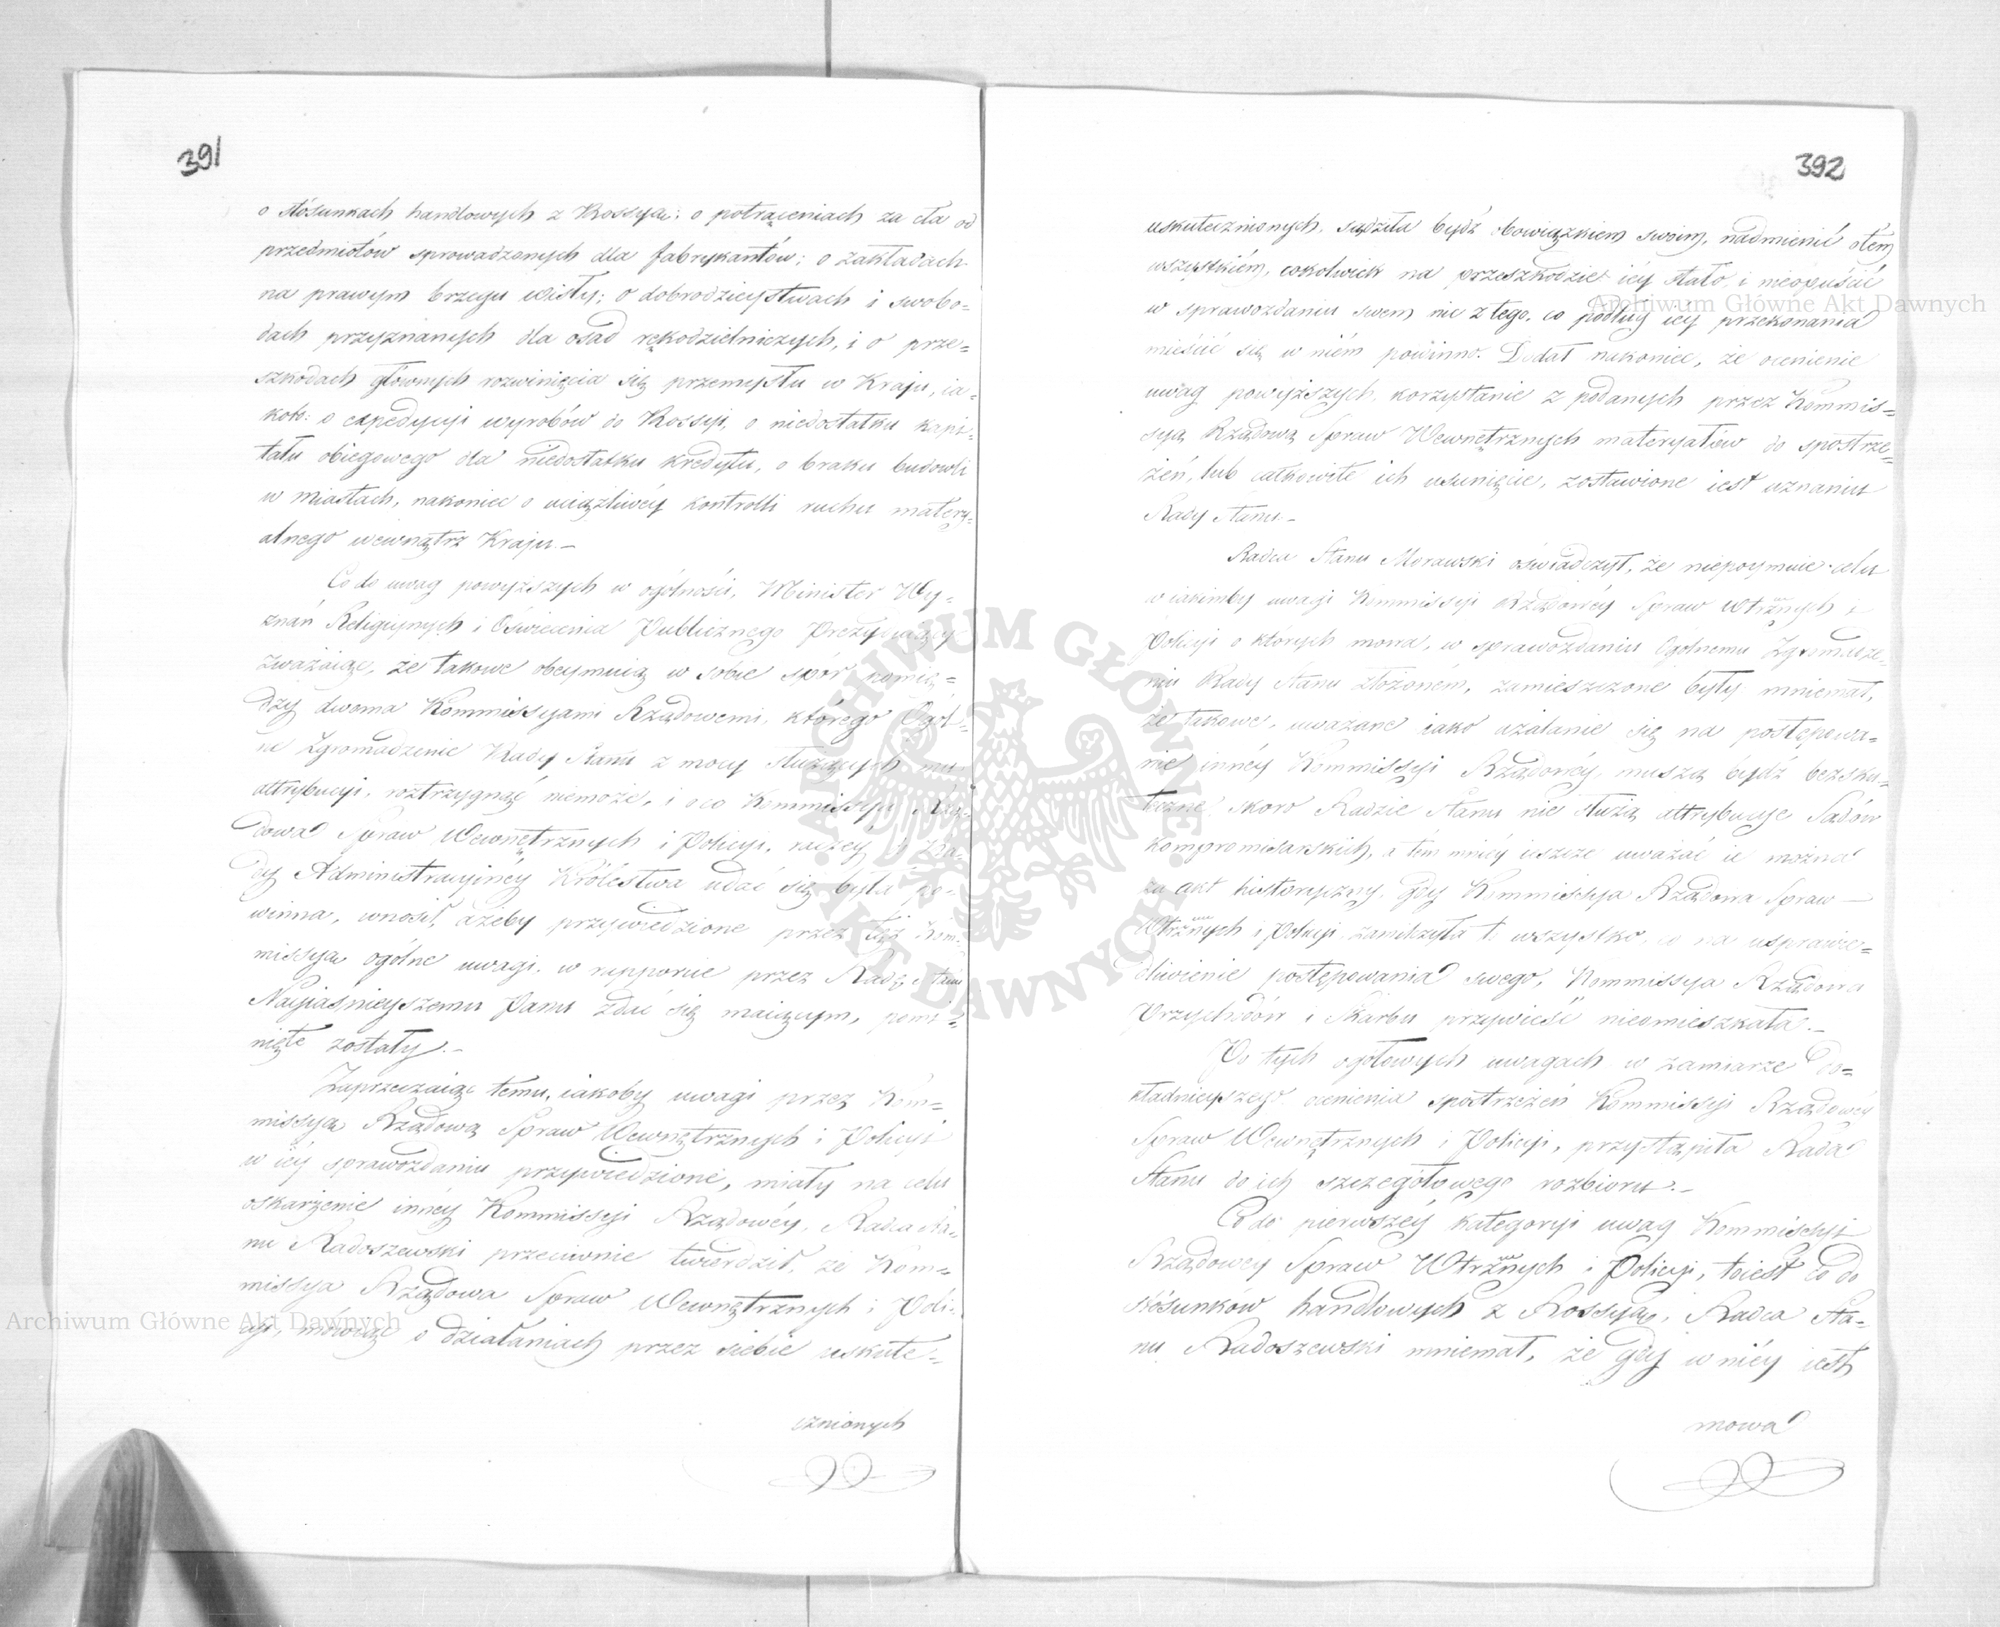 391
o stósunkach handlowych z Rossyą; o potrąceniach za cła od
przedmiotów sprowadzonych dla fabrykantów; o zakładach
na prawym brzegu Wisły; o dobrodzieystwach i swobo-
dach przyznanych dla osad rękodzielniczych, i o prze=
szkodach głównych rozwinięcia się przemysłu w Kraju, ia-
koto: o expedycyi wyrobów do Rossyi, o niedostatku kapi-
tału obiegowego dla niedostatku kredytu, o braku budowli
w miastach, nakoniec o uciążliwéy kontrolli ruchu matery-
alnego wewnątrz Kraju.—
Co do uwag powyższych w ogólności, Minister Wy-
znań Religiynych i Oświecenia Publicznego Prezyduiący
zważaiąc, że takowe obeymuią w sobie spór pomię=
dzy dwema Kommissyami Rządowemi, którego Ogól-
ne Zgromadzenie Rady Stanu z mocy służących mu
attrybucyi, roztrzygnąć niemoże, i o co Kommissya Rzą-
dowa Spraw Wewnętrznych i Policyi, raczéy do Ra-
dy Administracyinéy Królestwa udać się była po-
winna, wnosił, ażeby przywiedzione przez też Kom-
missyą ogólne uwagi, w rapporcie przez Radę Stanu
Nayiaśnieyszemu Panu zdać się maiącym, pomi-
nięte zostały.—
Zaprzeczaiąc temu, iakoby uwagi przez Kom=
missyą Rządową Spraw Wewnętrznych i Policyi
w iéy sprawozdaniu przywiedzione, miały na celu
oskarżenie innéy Kommissyi Rządowéy, Radca Sta-
nu Radoszewski przeciwnie twierdził, że Kom=
missya Rządowa Spraw Wewnętrznych i Poli-
cyi, mówiąc o działaniach przez siebie uskute-
cznionych
392
uskutecznionych, sądziła bydź obowiązkiem swoim, nadmienić otem
wszystkiém, cokolwiek na przeszkodzie iéy stało, i nieopuścić
w sprawozdaniu swem nic z tego, co podług iéy przekonania
mieścić się w niém powinno. Dodał nakoniec, że ocenienie
uwag powyższych, korzystanie z podanych przez Kommis=
syą Rządową Spraw Wewnętrznych materyałów do spostrze-
żeń, lub całkowite ich usunięcie, zostawione iest uznaniu
Rady Stanu.—
Radca Stanu Morawski oświadczył, że niepoymuie celu
w iakimby uwagi Kommissyi Rządowéy Spraw Wtrznych i
Policyi o których mowa, w sprawozdaniu Ogólnemu Zgromadze-
niu Rady Stanu złożoném, zamieszczone były mniemał,
że takowe, uważane iako użalanie się na postępowa-
nie innéy Kommissyi Rządowéy, muszą bydź bezsku-
teczne, skoro Radzie Stanu nie służą attrybucye Sądów
kompromisarskich, a tém mniéy ieszcze uważać ie można
za akt historyczny, gdy Kommissya Rządowa Spraw —
Wtrznych i Policyi zamilczyła to wszystko, co na usprawie=
dliwienie postępowania swego, Kommissya Rządowa
Przychodów i Skarbu przywieść nieomieszkała.—
Po tych ogółowych uwagach w zamiarze do=
kładnieyszego ocenienia spostrzeżeń Kommissyi Rządowéy
Spraw Wewnętrznych i Policyi, przystąpiła Rada
Stanu do ich szczegółowego rozbioru.—
Co do pierwszéy kategoryi uwag Kommissyi
Rządowéy Spraw Wtrznych i Policyi, toiest co do
stósunków handlowych z Rossyą, Radca Sta-
nu Radoszewski mniemał, że gdy w niéy iest
mowa
Archiwum Główne Akt Dawnych
Archiwum Główne Akt Dawnych
ARCHIWUM GŁÓWNE
AKT DAWNYCH